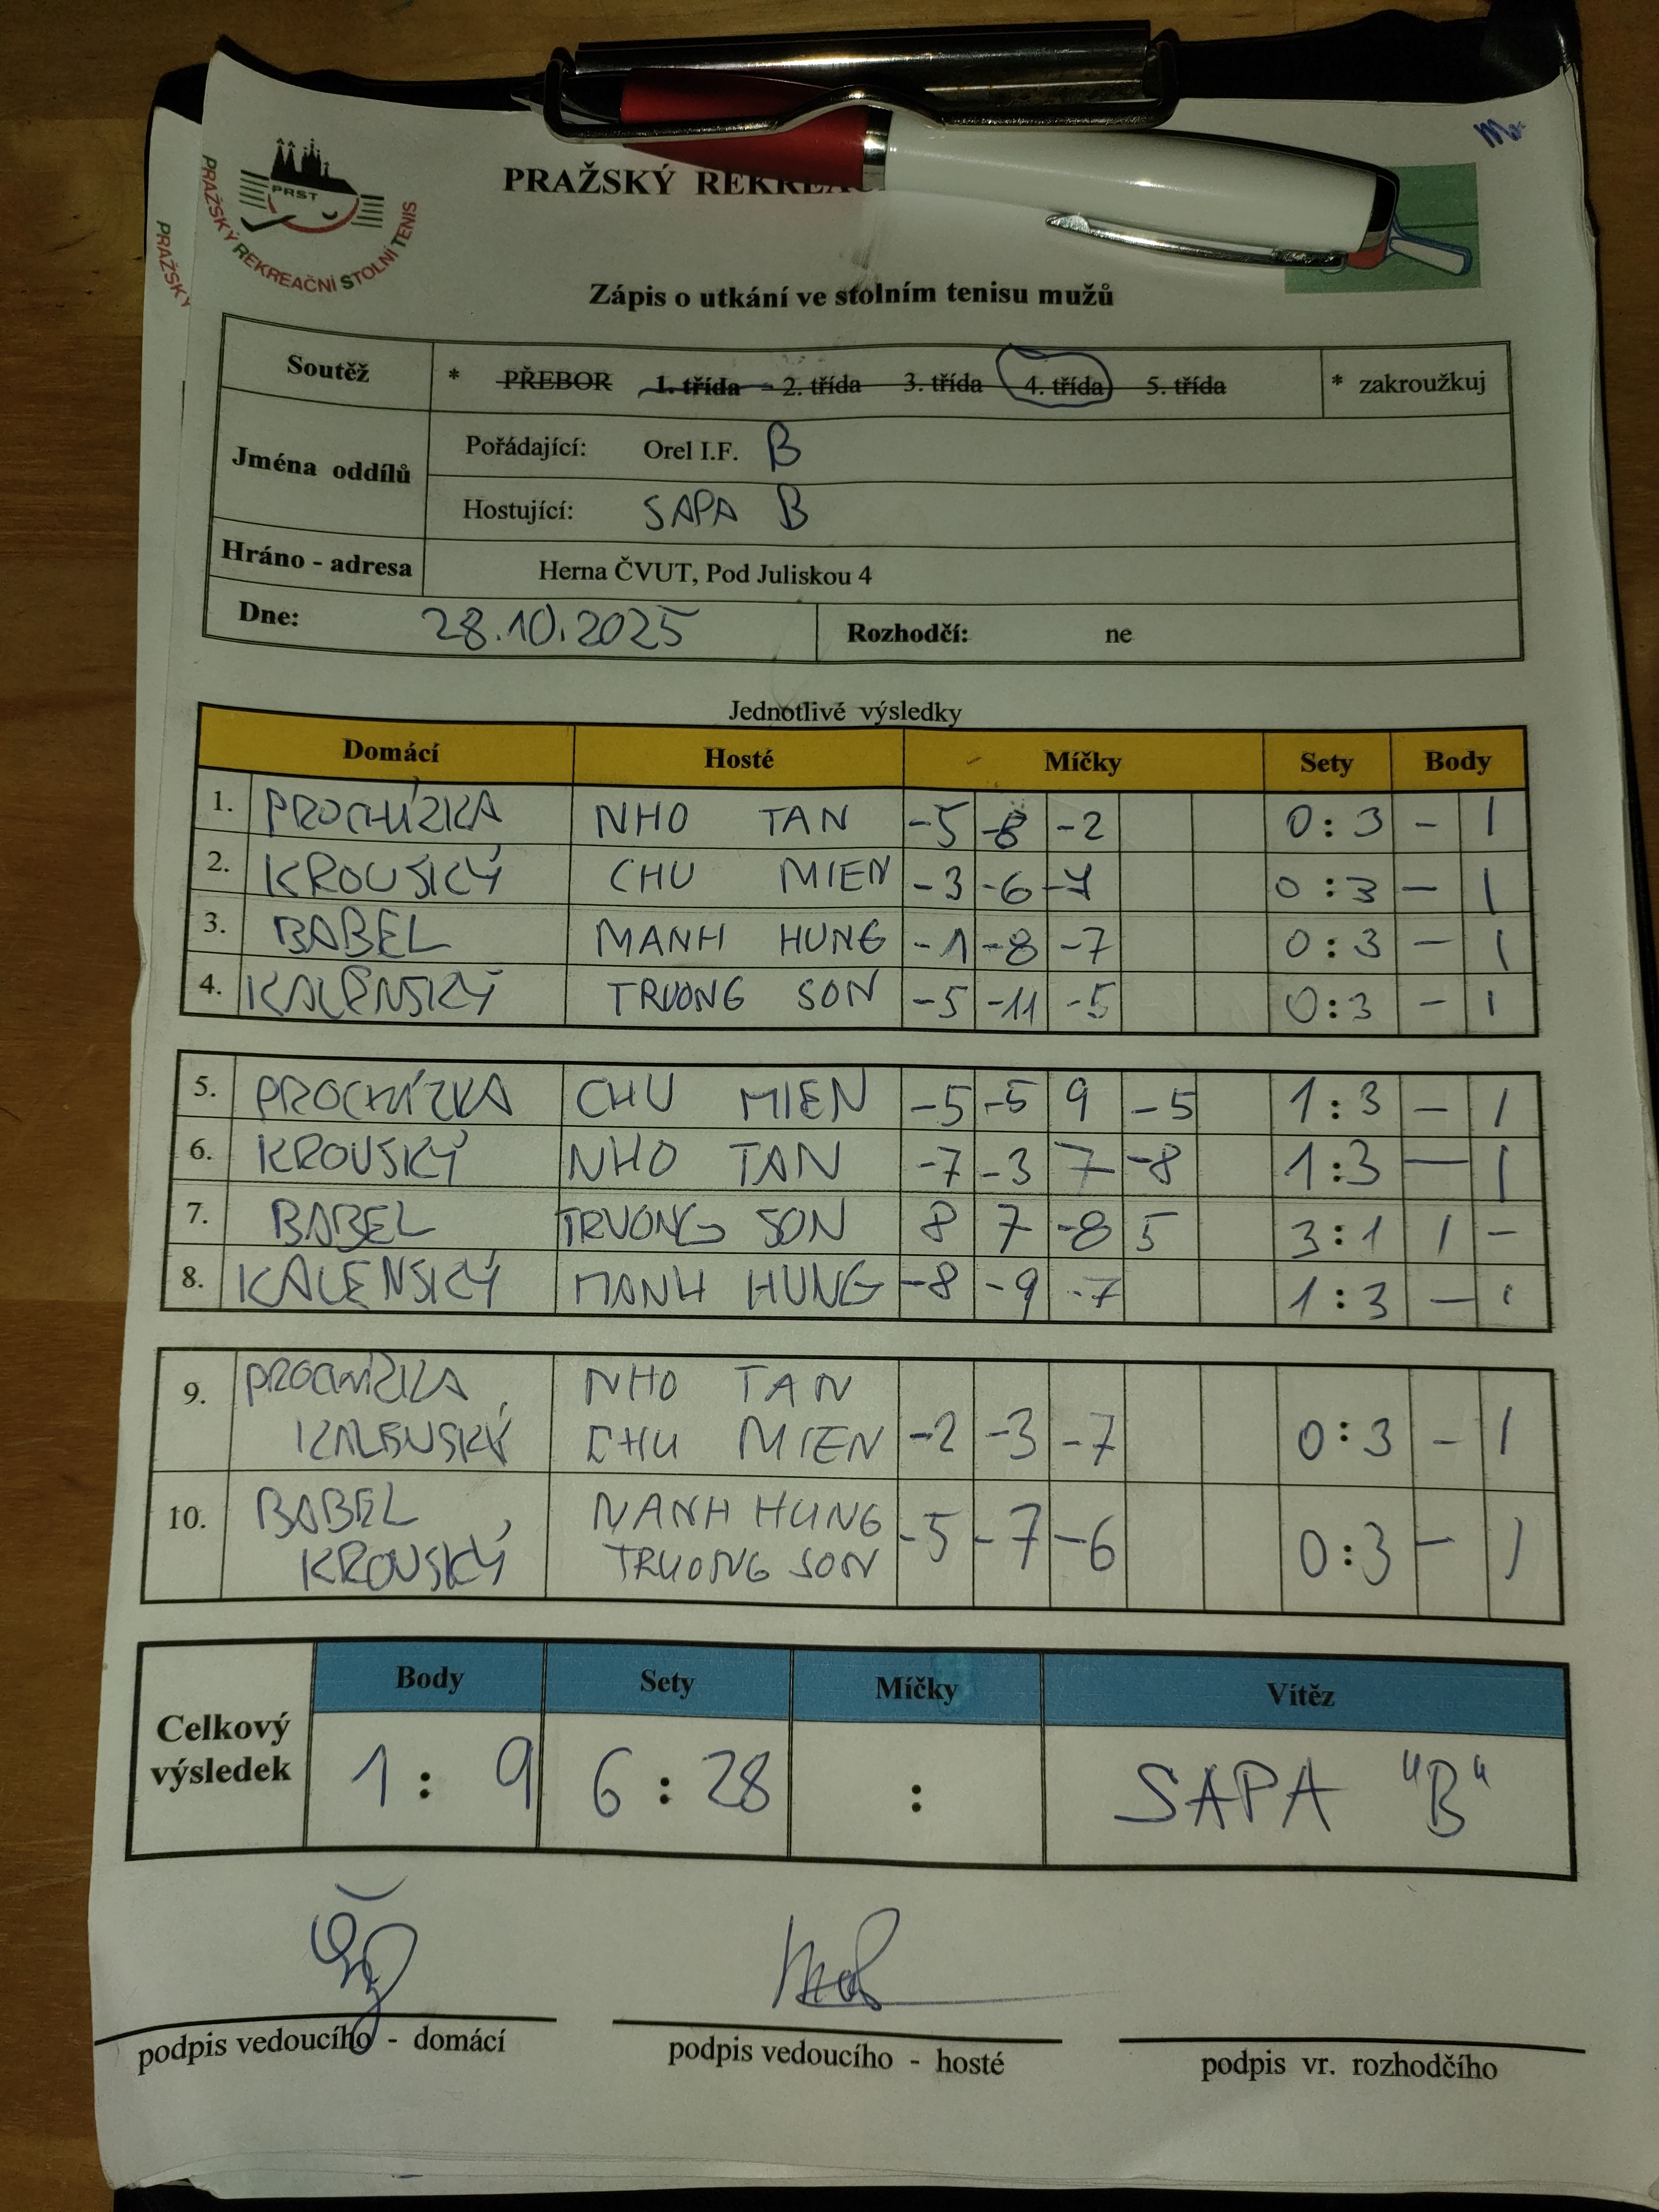 PRST
PRAŽSKÝ REKREAČNÍ STOLNÍ TENIS
PRAŽSKÝ
PRAŽSKÝ
Zápis o utkání ve stolním tenisu mužů
Soutěž * PŘEBOR 1. třída - 2. třída 3. třída 4. třída 5. třída * zakroužkuj
Jména oddílů
Pořádající: Orel I.F. B
Hostující: SAPA B
Hráno - adresa Herna ČVUT, Pod Juliskou 4
Dne: 28.10.2025 Rozhodčí: ne
Jednotlivé výsledky
Domácí Hosté Míčky Sety Body
1. PROCHÍZKA NHO TAN -5 -8 -2 0:3 - 1
2. KROUSKÝ CHU MIEN -3 -6 -7 0:3 - 1
3. BABEL MANH HUNG -1 -8 -7 0:3 - 1
4. KALENSKÝ TRUONG SON -5 -11 -5 0:3 - 1
5. PROCHÍZKA CHU MIEN -5 -5 9 -5 1:3 - 1
6. KROUSKÝ NHO TAN -7 -3 7 -8 1:3 - 1
7. BABEL TRUONG SON 8 7 -8 5 3:1 1 -
8. KALENSKÝ MANH HUNG -8 -9 -7 1:3 - 1
9. PROCHÍZKA NHO TAN
KALENSKÝ CHU MIEN -2 -3 -7 0:3 - 1
10. BABEL NANH HUNG
KROUSKÝ TRUONG SON -5 -7 -6 0:3 - 1
Body Sety Míčky Vítěz
Celkový výsledek 1 : 9 6 : 28 : SAPA "B"
podpis vedoucího - domácí podpis vedoucího - hosté podpis vr. rozhodčího